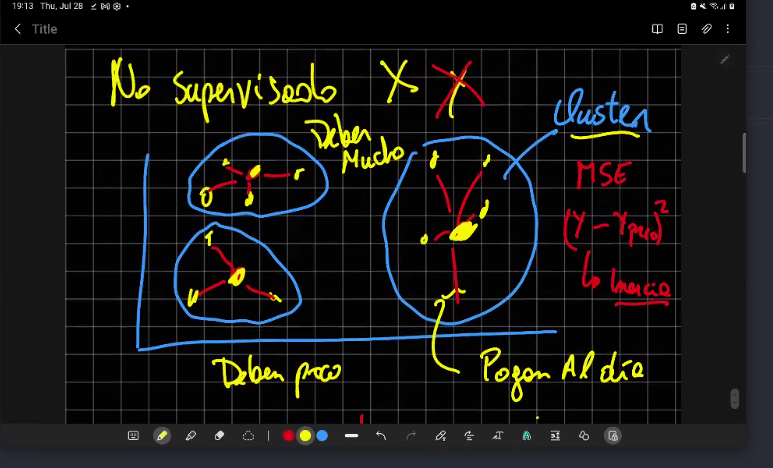 19:13 Thu, Jul 28
Title
No supervisado X Y
Cluster
Deben
Mucho
MSE
(Y - Ypred)²
Inercia
Deben poco
Pagan Al día